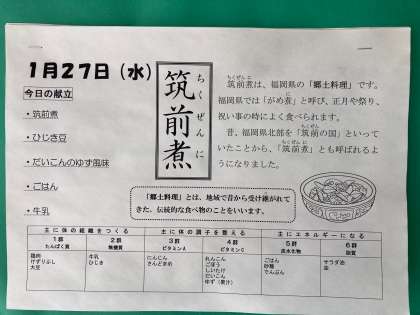 1月27日（水）
今日の献立
・筑前煮
・ひじき豆
・だいこんのゆず風味
・ごはん
・牛乳
筑前煮
ちくぜんに
筑前煮は、福岡県の「郷土料理」です。
福岡県では「がめ煮」と呼び、正月や祭り、
祝い事の時によく食べられます。
昔、福岡県北部を「筑前の国」といって
いたことから、「筑前煮」とも呼ばれるよ
うになりました。
「郷土料理」とは、地域で昔から受け継がれて
きた、伝統的な食べ物のことをいいます。
主に体の組織をつくる 主に体の調子を整える 主にエネルギーになる
1群 2群 3群 4群 5群 6群
たんぱく質 無機質 ビタミンA ビタミンC 炭水化物 脂質
鶏肉 牛乳 にんじん れんこん ごはん サラダ油
けずりぶし ひじき さんどまめ ごぼう 砂糖 油
大豆 しいたけ でんぷん
だいこん
ゆず（果汁）